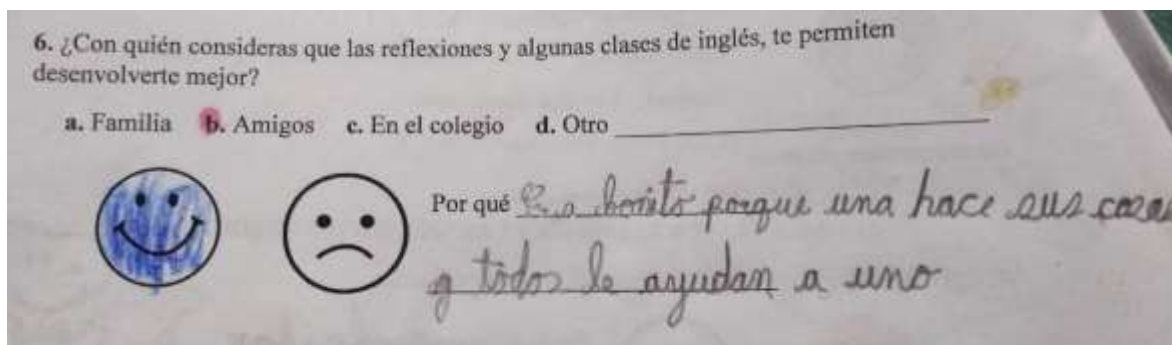 6. ¿Con quién consideras que las reflexiones y algunas clases de inglés, te permiten
desenvolverte mejor?
a. Familia b. Amigos c. En el colegio d. Otro
Por qué bonito porque una hace sus cosas
y todos le ayudan a uno